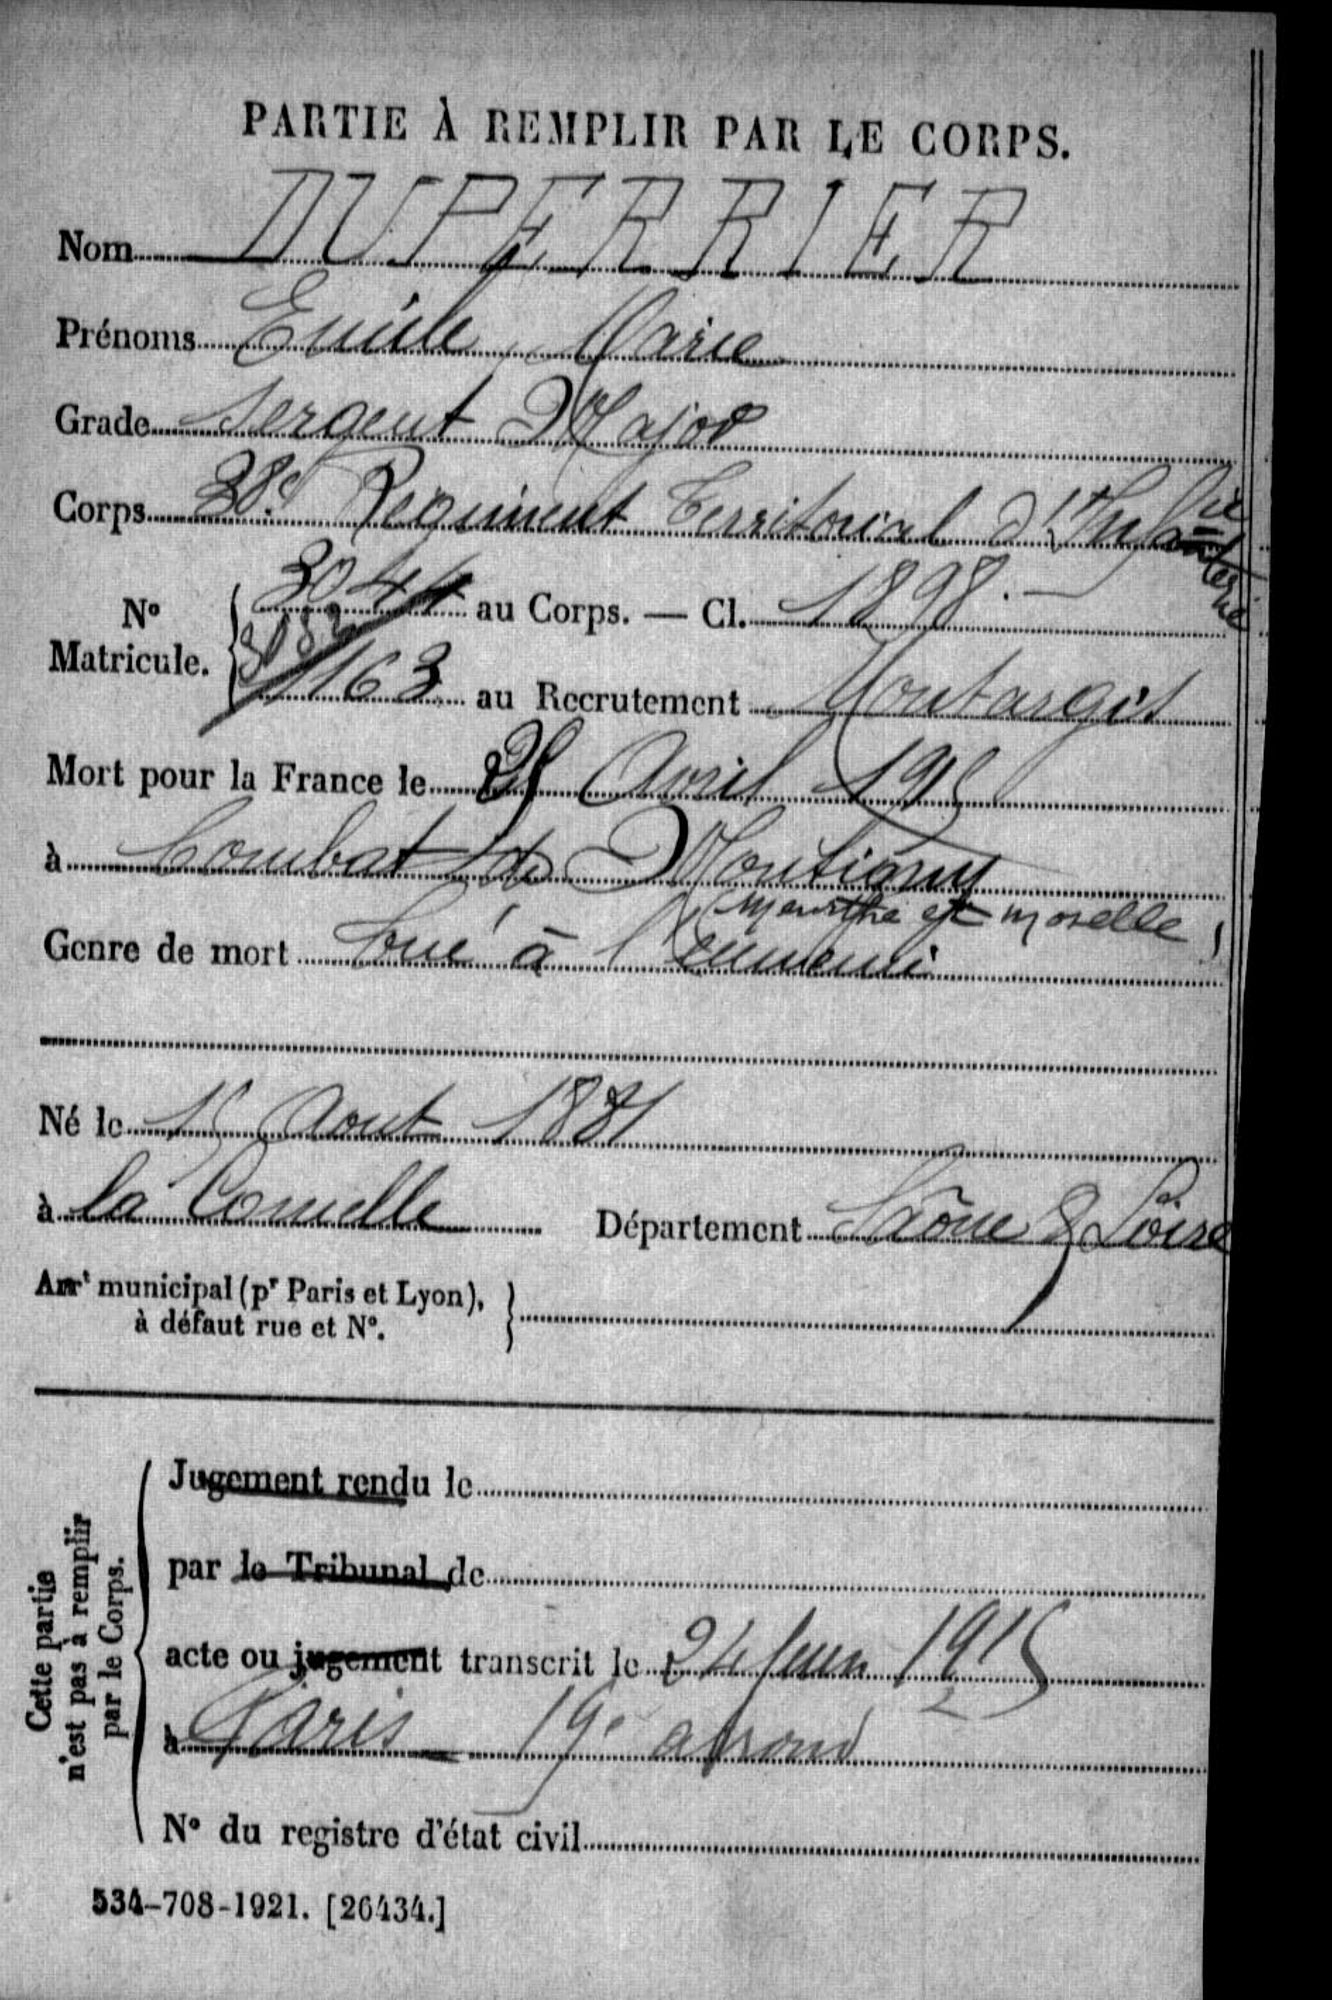 PARTIE À REMPLIR PAR LE CORPS.
Nom DUPERRIER
Prénoms Emile Marie
Grade Sergent Major
Corps 38e Régiment Territorial d'Infanterie
3044 au Corps. — Cl. 1898. —
N° Matricule. 3082
1163 au Recrutement Montargis
Mort pour la France le 25 Avril 1915
à Combat de Montigny
(Meurthe et Moselle)
Genre de mort tué à l'ennemi
Né le 15 Aout 1881
à la Comelle Département Saône & Loire
Arrt municipal (pr Paris et Lyon),
à défaut rue et N°.
Cette partie
n'est pas à remplir
par le Corps.
Jugement rendu le
par le Tribunal de
acte ou jugement transcrit le 24 Juin 1915
à Paris — 19e arrond
N° du registre d'état civil
534-708-1921. [26434.]